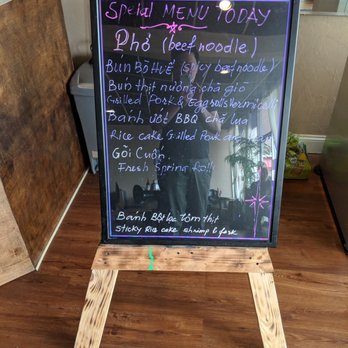 Special MENU TODAY
Phở (beef noodle)
Bún Bò Huế (spicy beef noodle)
Bún thịt nướng chả giò
Grilled Pork & Eggrolls Vermicelli
Bánh ướt BBQ chả lụa
Rice cake Grilled Pork and
Gỏi Cuốn
Fresh Spring Roll
Bánh Bột lọc tôm thịt
Sticky Rice cake shrimp & pork